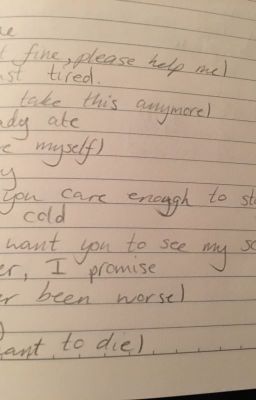 t fine, please help me)
st tired.
take this anymore)
ady ate
e myself)
y
you care enough to st
cold
want you to see my sc
er, I promise
er been worse)
)
ant to die)